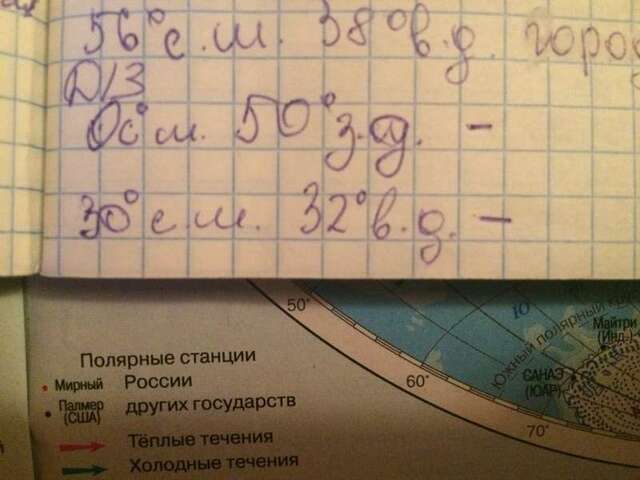 56° с.ш. 38°в.д. горо
Д/З
0с° ш. 50° з.д. –
30° с.ш. 32° в.д. –
Полярные станции
Мирный России
Палмер (США) других государств
Тёплые течения
Холодные течения
50°
60°
70°
Южный полярный
САНАЭ
(ЮАР)
Майтри